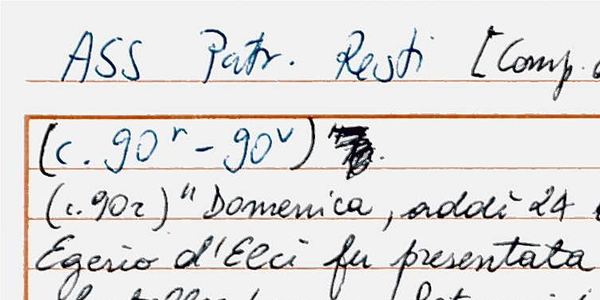 ASS Patr. Resti [Comp.
(c. 90r - 90v)
(c. 90r) "Domenica, addì 24
Egerio d'Elci fu presentata